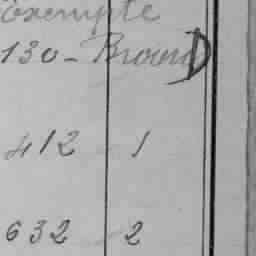 exempte
130 - Brown D
412 1
632 2